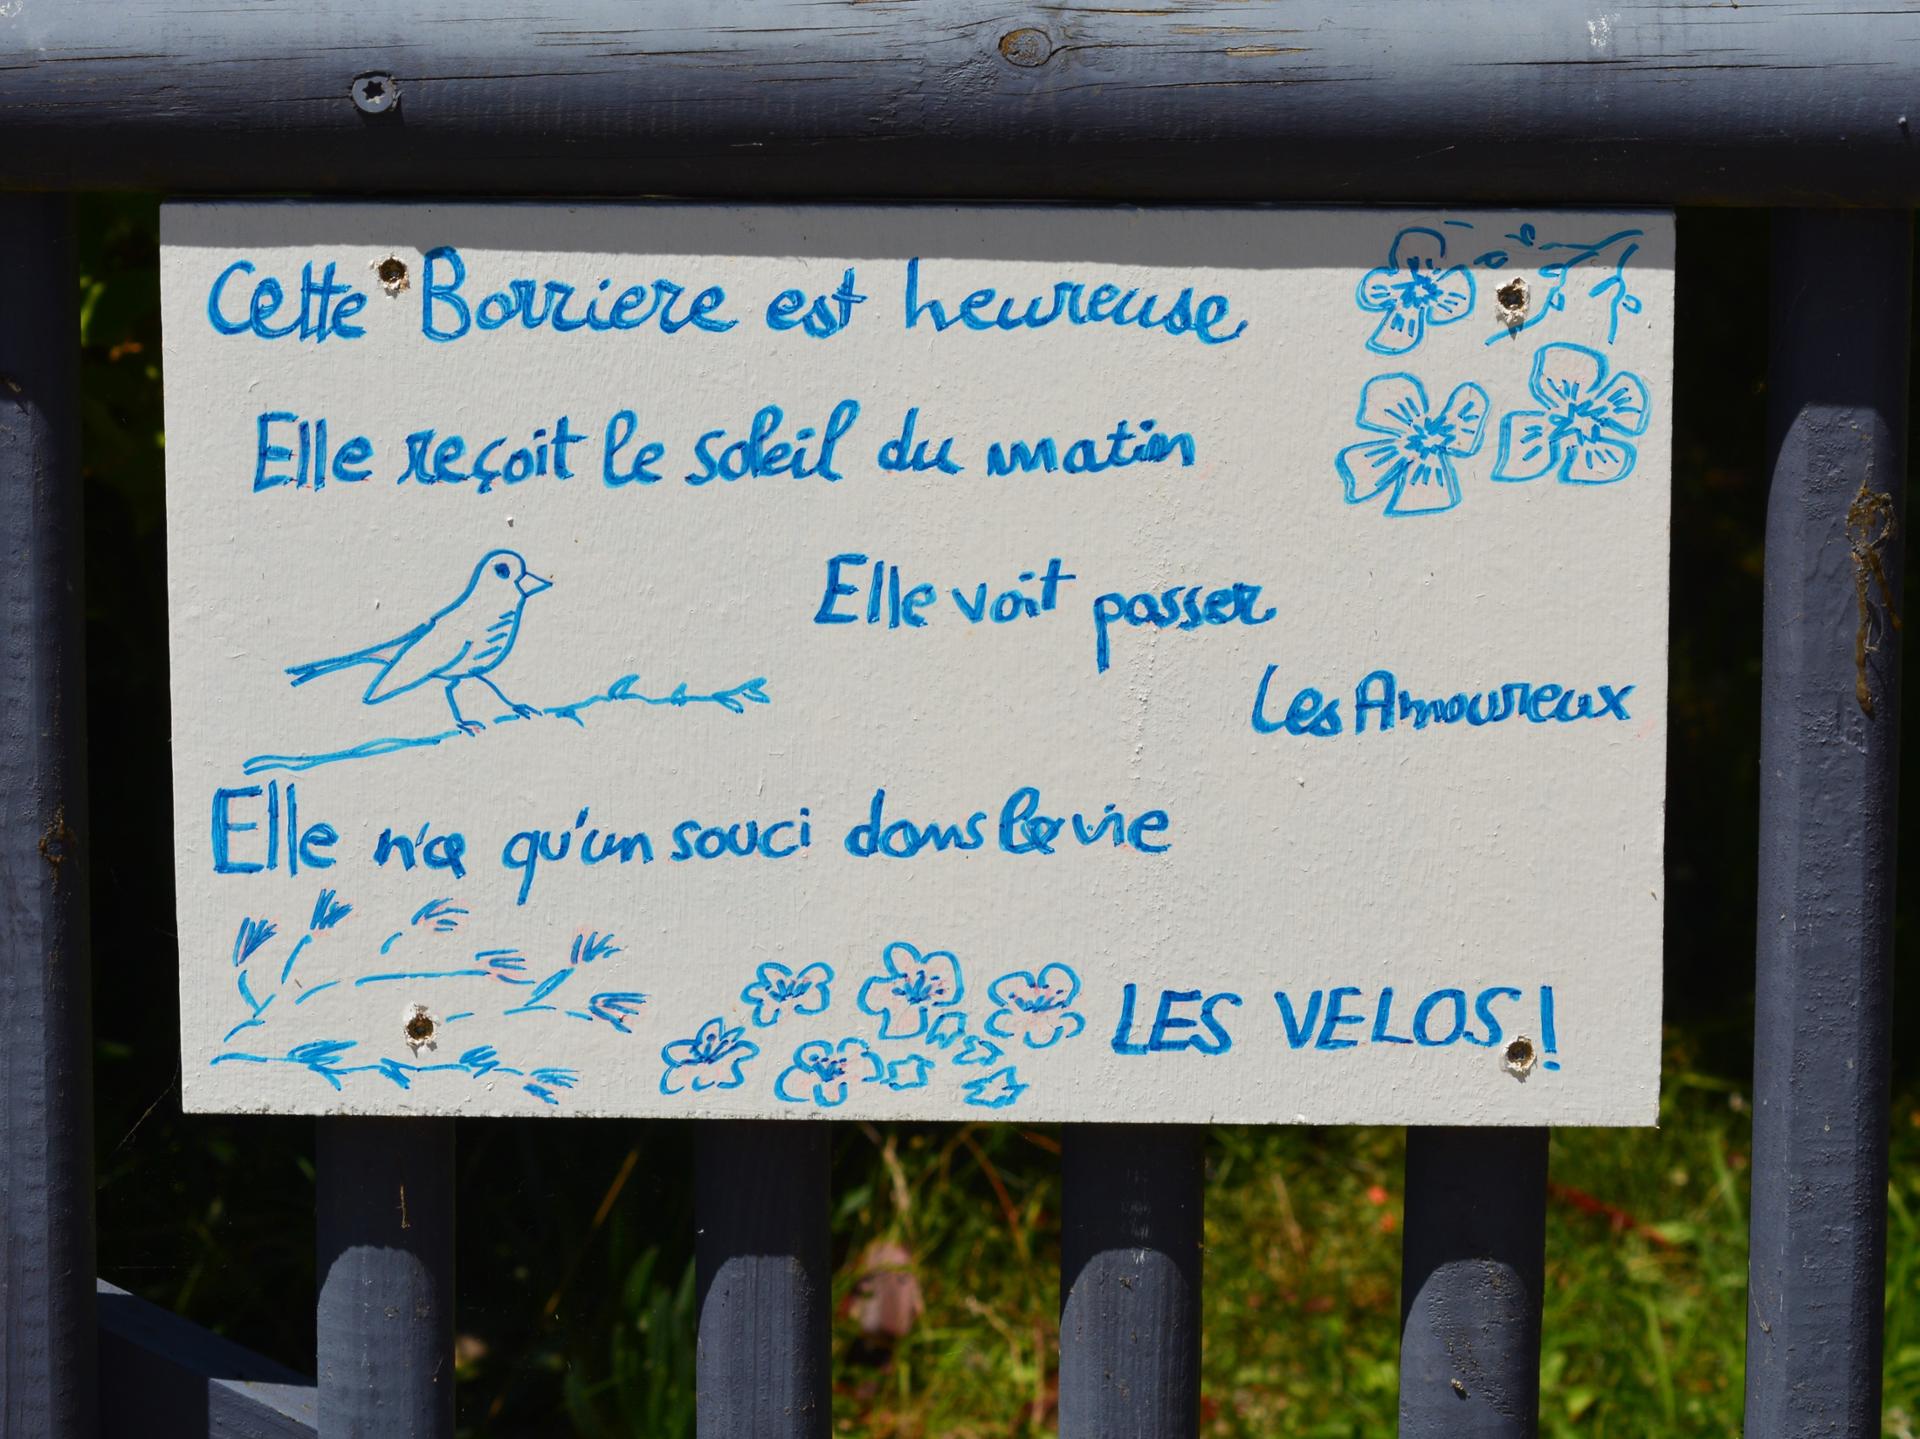 Cette Barriere est heureuse
Elle reçoit le soleil du matin
Elle voit passer
Les Amoureux
Elle n'a qu'un souci dans la vie
LES VELOS !